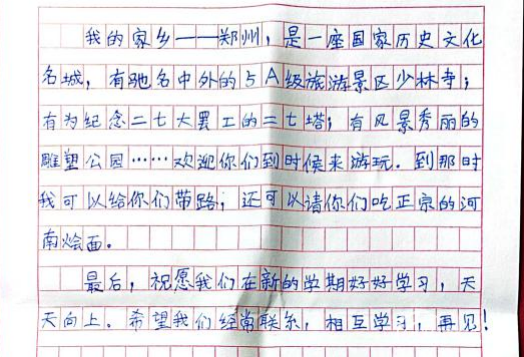 我的家乡——郑州，是一座国家历史文化
名城，有驰名中外的5A级旅游景区少林寺；
有为纪念二七大罢工的二七塔；有风景秀丽的
雕塑公园……欢迎你们到时候来游玩．到那时
我可以给你们带路；还可以请你们吃正宗的河
南烩面。
最后，祝愿我们在新的学期好好学习，天
天向上。希望我们经常联系，相互学习，再见！